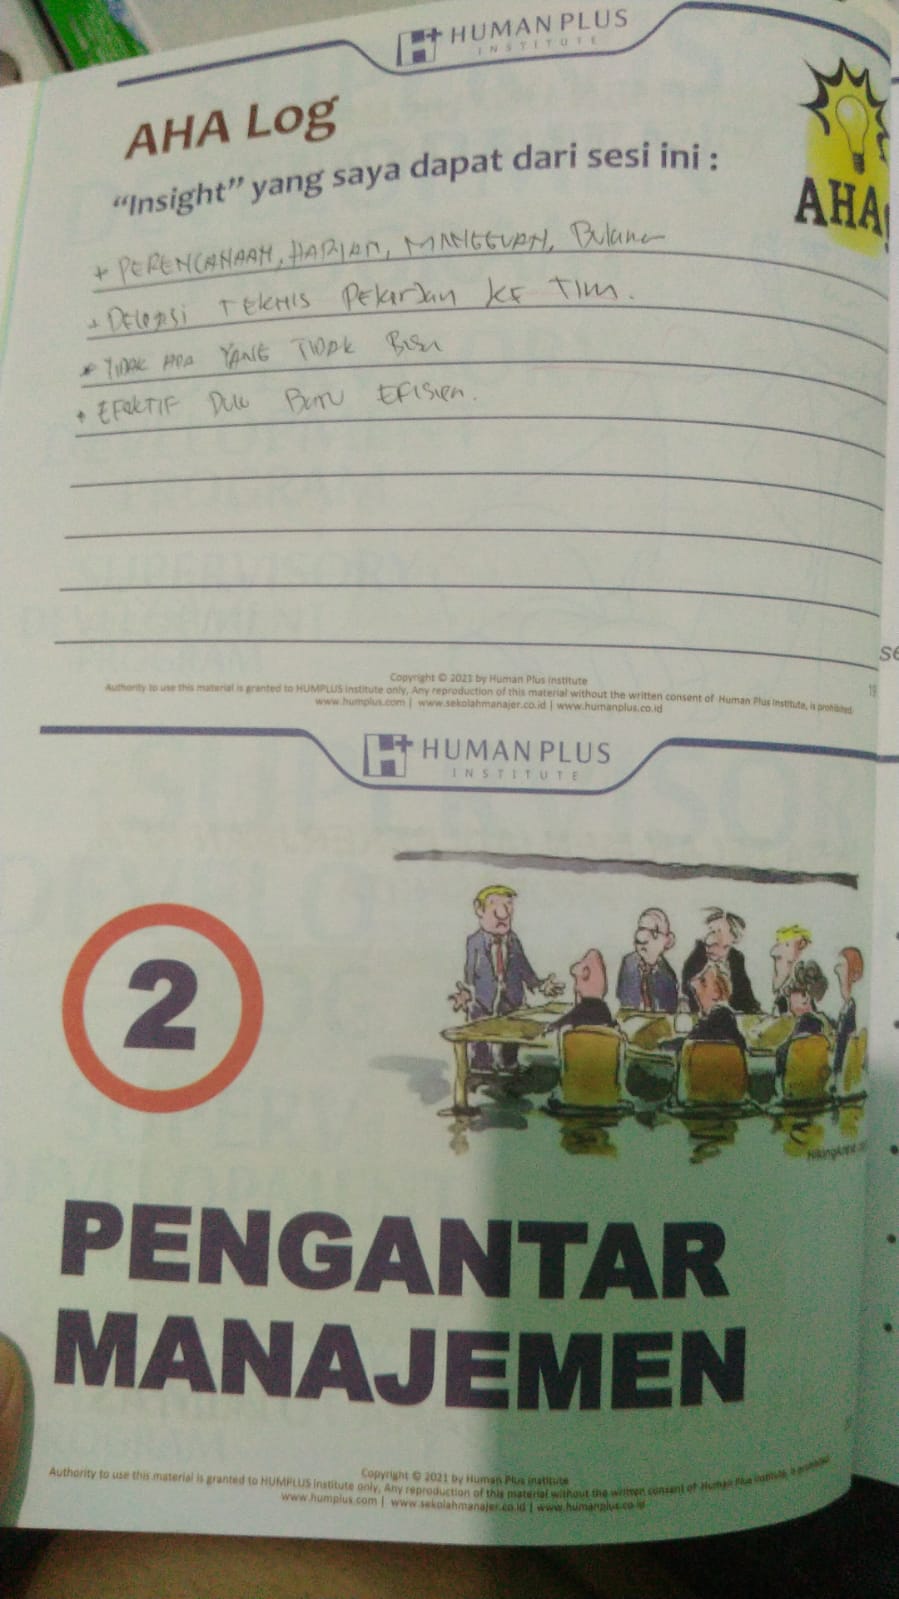 HUMAN PLUS
INSTITUTE
AHA Log
"Insight" yang saya dapat dari sesi ini :
AHA!
+ PERENCANAAN, HARIAN, MINGGUAN, Bulanan
+ DElegasi TEKNIS PekerJan KE TIM.
* TIDAK ADA YANG TIDAK Bisa
+ EFEKTIF DULU BARU EFISien.
Copyright © 2021 by Human Plus Institute
19
Authority to use this material is granted to HUMPLUS Institute only, Any reproduction of this material without the written consent of Human Plus Institute, is prohibited
www.humplus.com | www.sekolahmanajer.co.id | www.humanplus.co.id
HUMAN PLUS
INSTITUTE
2
PENGANTAR
MANAJEMEN
Copyright © 2021 by Human Plus Institute
Authority to use this material is granted to HUMPLUS Institute only, Any reproduction of this material without the written consent of Human Plus Institute, is prohibited
www.humplus.com | www.sekolahmanajer.co.id | www.humanplus.co.id